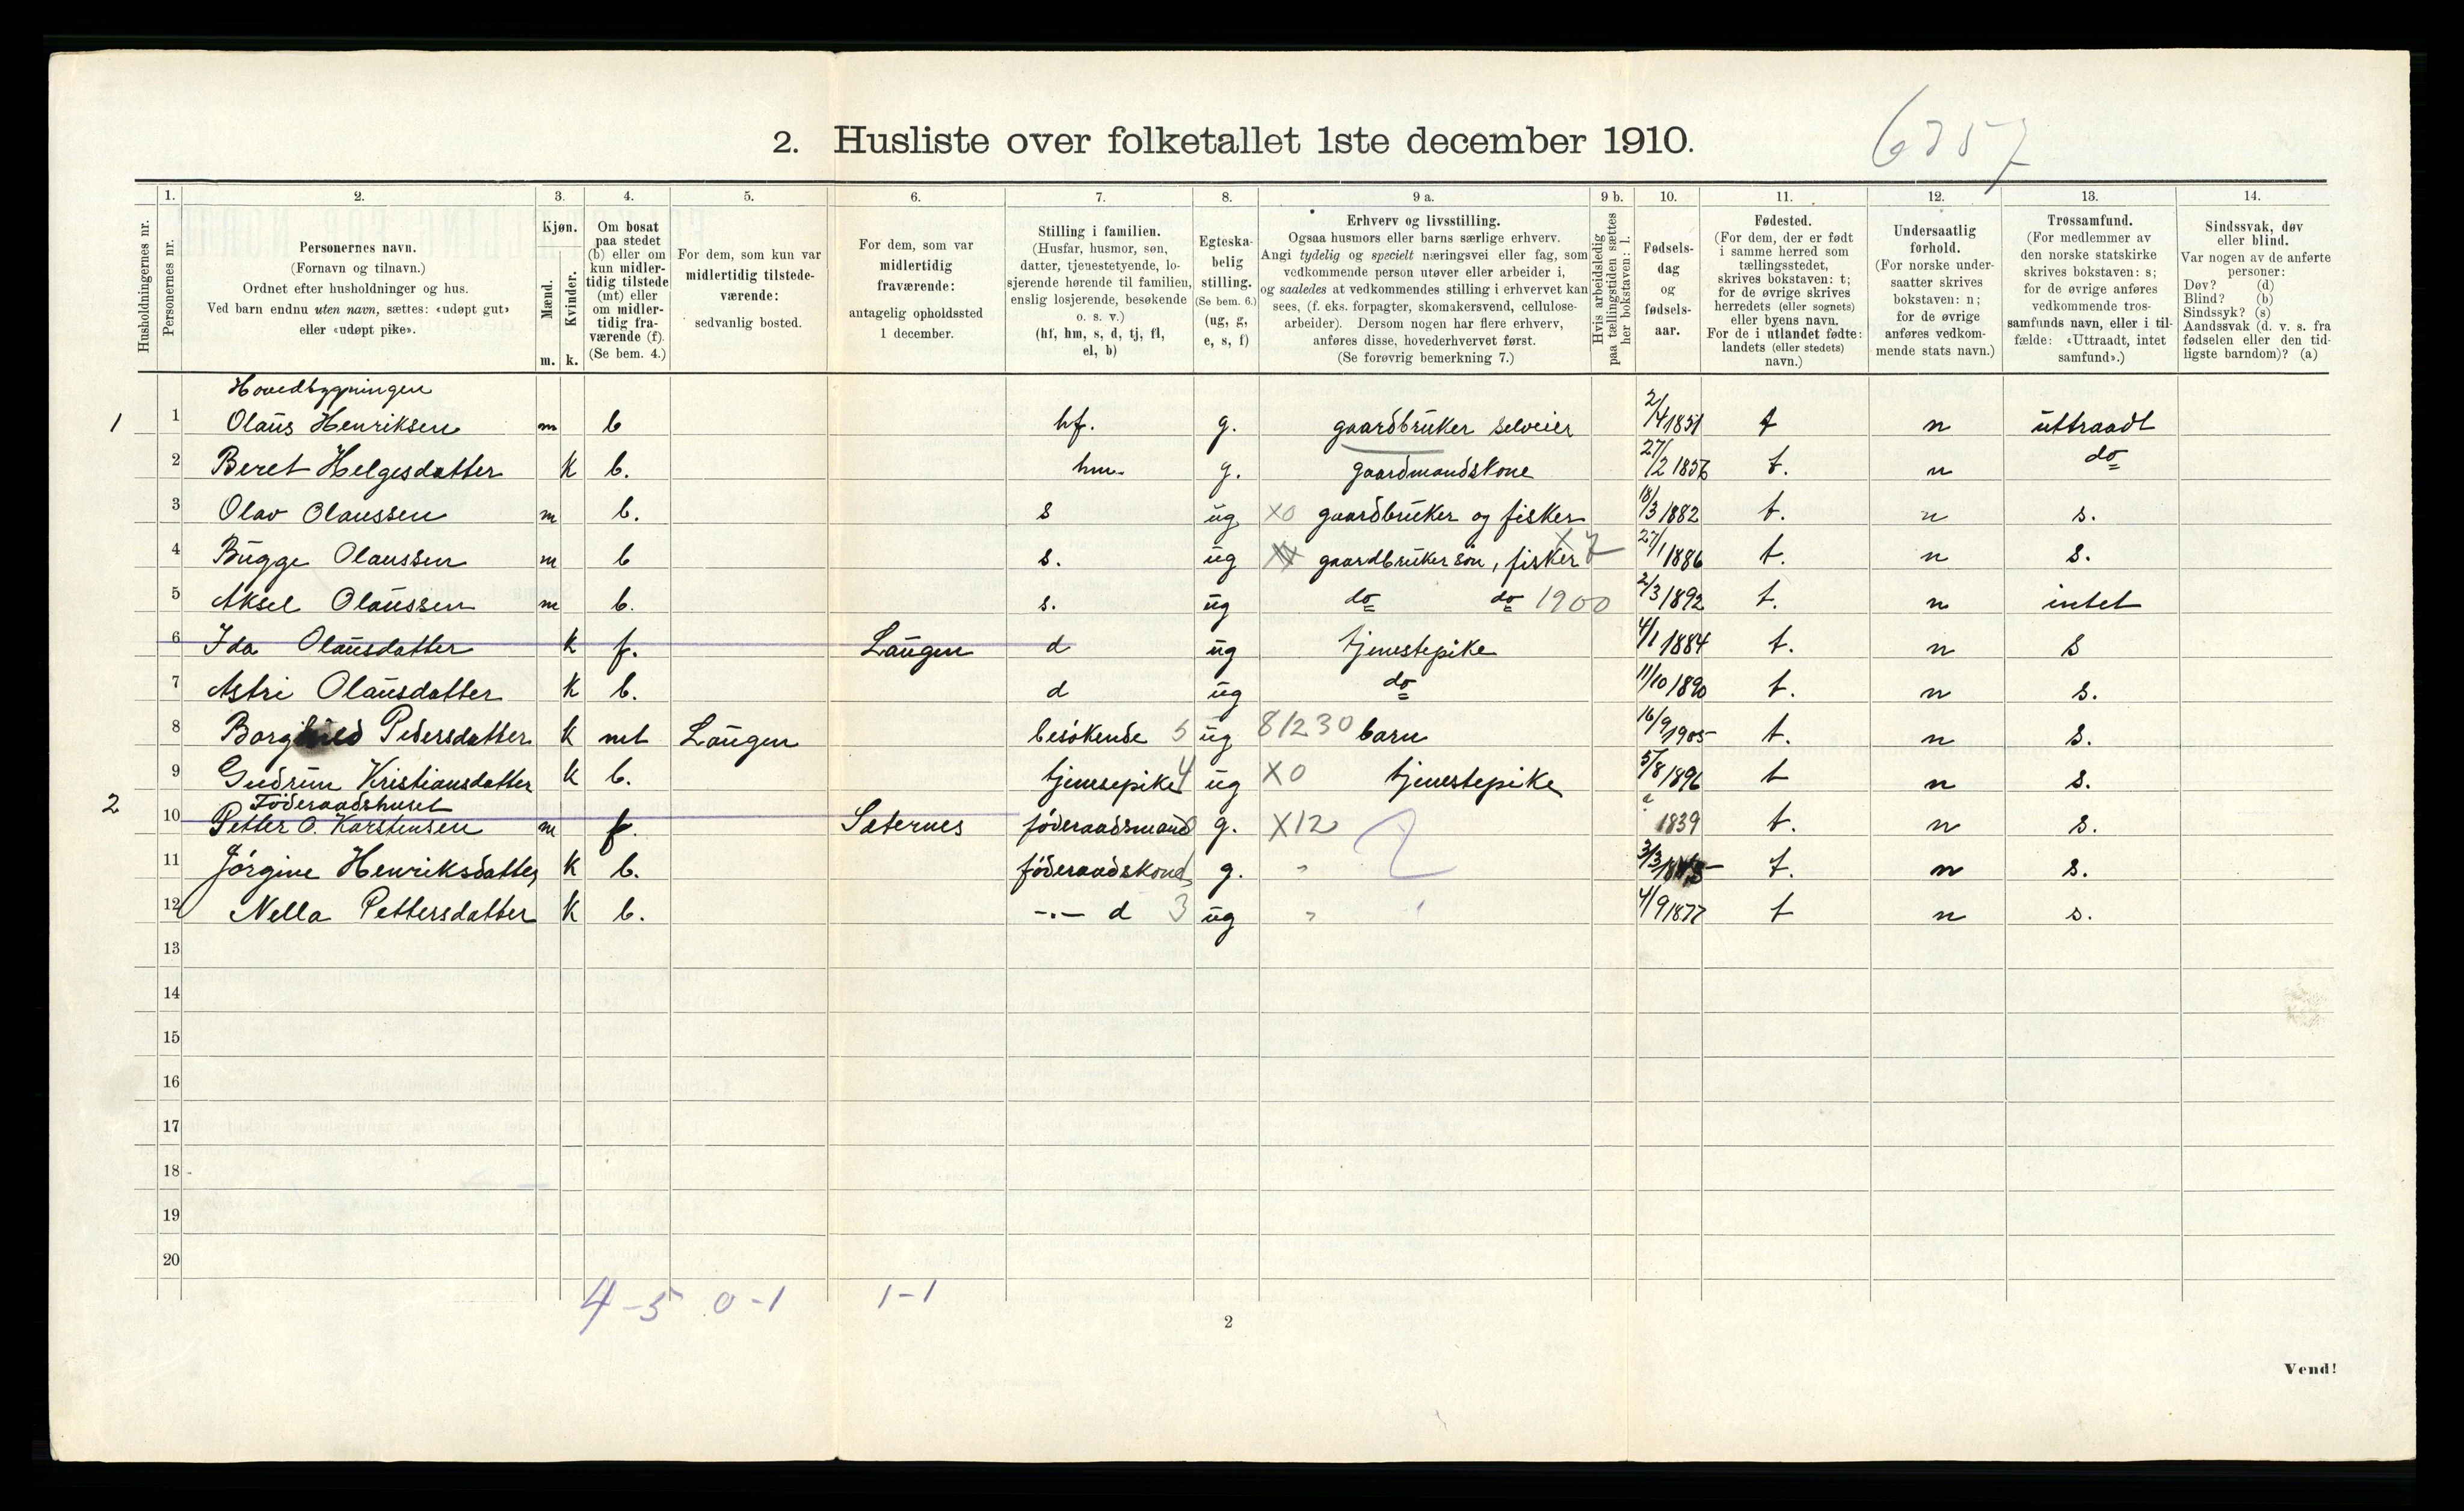 2. Husliste over folketallet 1ste december 1910.
1. 2. 3. 4. 5. 6. 7. 8. 9 a. 9 b. 10. 11. 12. 13. 14.
Husholdningernes nr.
Personernes nr.
Personernes navn.
(Fornavn og tilnavn.)
Ordnet efter husholdninger og hus.
Ved barn endnu uten navn, sættes: «udøpt gut»
eller «udøpt pike».
Kjøn.
Mænd.
Kvinder.
m. k.
Om bosat
paa stedet
(b) eller om
kun midler-
tidig tilstede
(mt) eller
om midler-
tidig fra-
værende (f).
(Se bem. 4.)
For dem, som kun var
midlertidig tilstede-
værende:
sedvanlig bosted.
For dem, som var
midlertidig
fraværende:
antagelig opholdssted
1 december.
Stilling i familien.
(Husfar, husmor, søn,
datter, tjenestetyende, lo-
sjerende hørende til familien,
enslig losjerende, besøkende
o. s. v.)
(hf, hm, s, d, tj, fl,
el, b)
Egteska-
belig
stilling.
(Se bem. 6.)
(ug, g,
e, s, f)
Erhverv og livsstilling.
Ogsaa husmors eller barns særlige erhverv.
Angi tydelig og specielt næringsvei eller fag, som
vedkommende person utøver eller arbeider i,
og saaledes at vedkommendes stilling i erhvervet kan
sees, (f. eks. forpagter, skomakersvend, cellulose-
arbeider). Dersom nogen har flere erhverv,
anføres disse, hovederhvervet først.
(Se forøvrig bemerkning 7.)
Hvis arbeidsledig
paa tællingstiden sættes
her bokstaven: l.
Fødsels-
dag
og
fødsels-
aar.
Fødested.
(For dem, der er født
i samme herred som
tællingsstedet,
skrives bokstaven: t;
for de øvrige skrives
herredets (eller sognets)
eller byens navn.
For de i utlandet fødte:
landets (eller stedets)
navn.)
Undersaatlig
forhold.
(For norske under-
saatter skrives
bokstaven: n;
for de øvrige
anføres vedkom-
mende stats navn.)
Trossamfund.
(For medlemmer av
den norske statskirke
skrives bokstaven: s;
for de øvrige anføres
vedkommende tros-
samfunds navn, eller i til-
fælde: «Uttraadt, intet
samfund».)
Sindssvak, døv
eller blind.
Var nogen av de anførte
personer:
Døv? (d)
Blind? (b)
Sindssyk? (s)
Aandssvak (d. v. s. fra
fødselen eller den tid-
ligste barndom)? (a)
Hovedbygningen
1 1 Olaus Henriksen m b hf. g. gaardbruker selveier 2/4 1851 t n uttraadt
2 Beret Helgesdatter k b. hm. g. gaardmandskone 27/2 1856 t. n do
3 Olav Olaussen m b. s ug X0 gaardbruker og fisker 18/3 1882 t. n s.
4 Bugge Olaussen m b s. ug gaardbrukersøn, fisker X7 27/1 1886 t. n s.
5 Aksel Olaussen m b. s. ug do do 1900 2/3 1892 t. n intet
6 Ida Olausdatter k f. Laugen d ug tjenestepike 4/1 1884 t. n s
7 Astri Olausdatter k b. d ug do 11/10 1890 t. n s.
8 Borghild Pedersdatter k mt Laugen besøkende 5 ug 81230 barn 16/9 1905 t. n s.
9 Gudrun Kristiansdatter k b. tjensepike 4 ug X0 tjenestepike 5/8 1896 t n s.
2 Føderaadshuset
10 Petter O. Karstensen m f. Sæternes føderaadsmand g. X12 1839 t. n s.
11 Jørgine Henriksdatter k b. føderaadskone g. " 3/3 t. n s.
12 Nella Pettersdatter k b. -.- d 3 ug " 4/9 1877 t n s.
13
14
15
16
17
18
19
20
4-5 0-1 1-1
2
Vend!